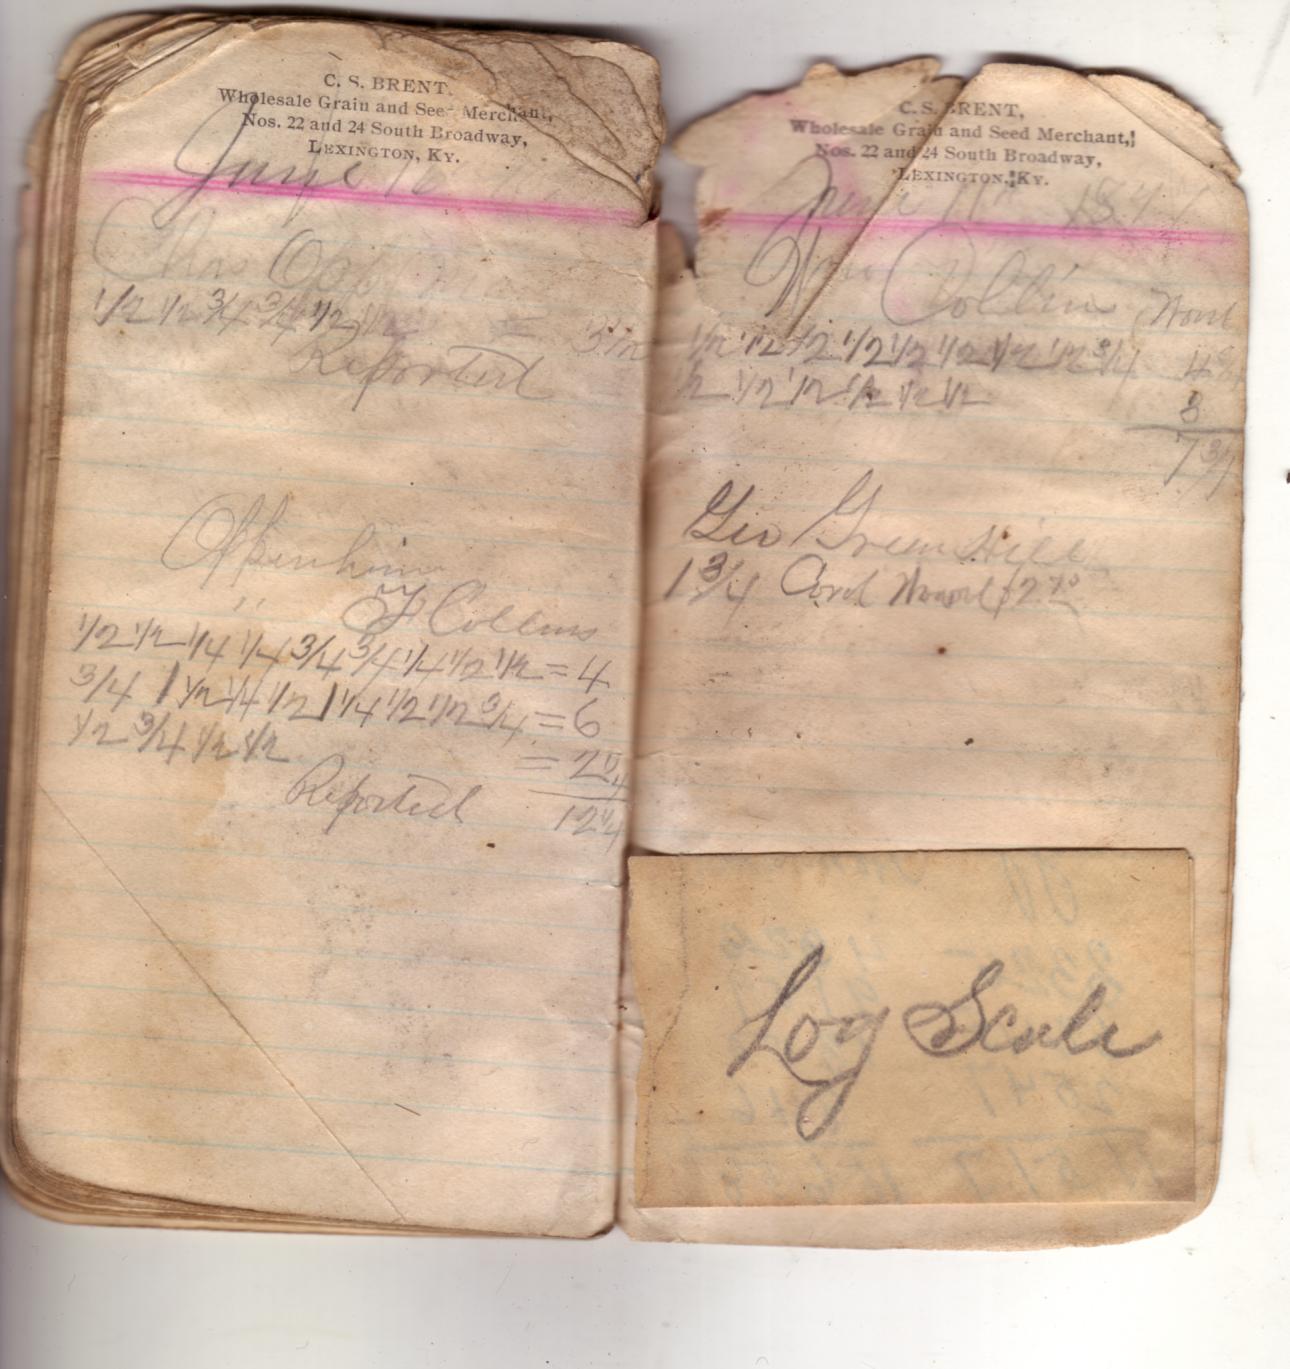 C. S. BRENT,
Wholesale Grain and See Merchant,
Nos. 22 and 24 South Broadway,
LEXINGTON, KY.
June 10
Chas Opp
1/2 1/2 3/4 3/4 1/2 1/2 = 3 1/2
Reported
Oppenhim
" F Collins
1/2 1/2 1/4 1/4 3/4 3/4 1/4 1/2 1/2 = 4
3/4 1 1/2 1/4 1/2 1 1/4 1/2 1/2 3/4 = 6
1/2 3/4 1/2 1/2 = 2 1/4
Reported 12 1/4
C. S. BRENT,
Wholesale Grain and Seed Merchant,
Nos. 22 and 24 South Broadway,
LEXINGTON, KY.
June 189
Collins
1/2 1/2 1/2 1/2 1/2 1/2 1/2 1/2 3/4 4 3/4
1/2 1/2 1/2 1/2 1/2 1/2 3
7 3/4
Geo Green Hill
1 3/4 Cord
Log Scale